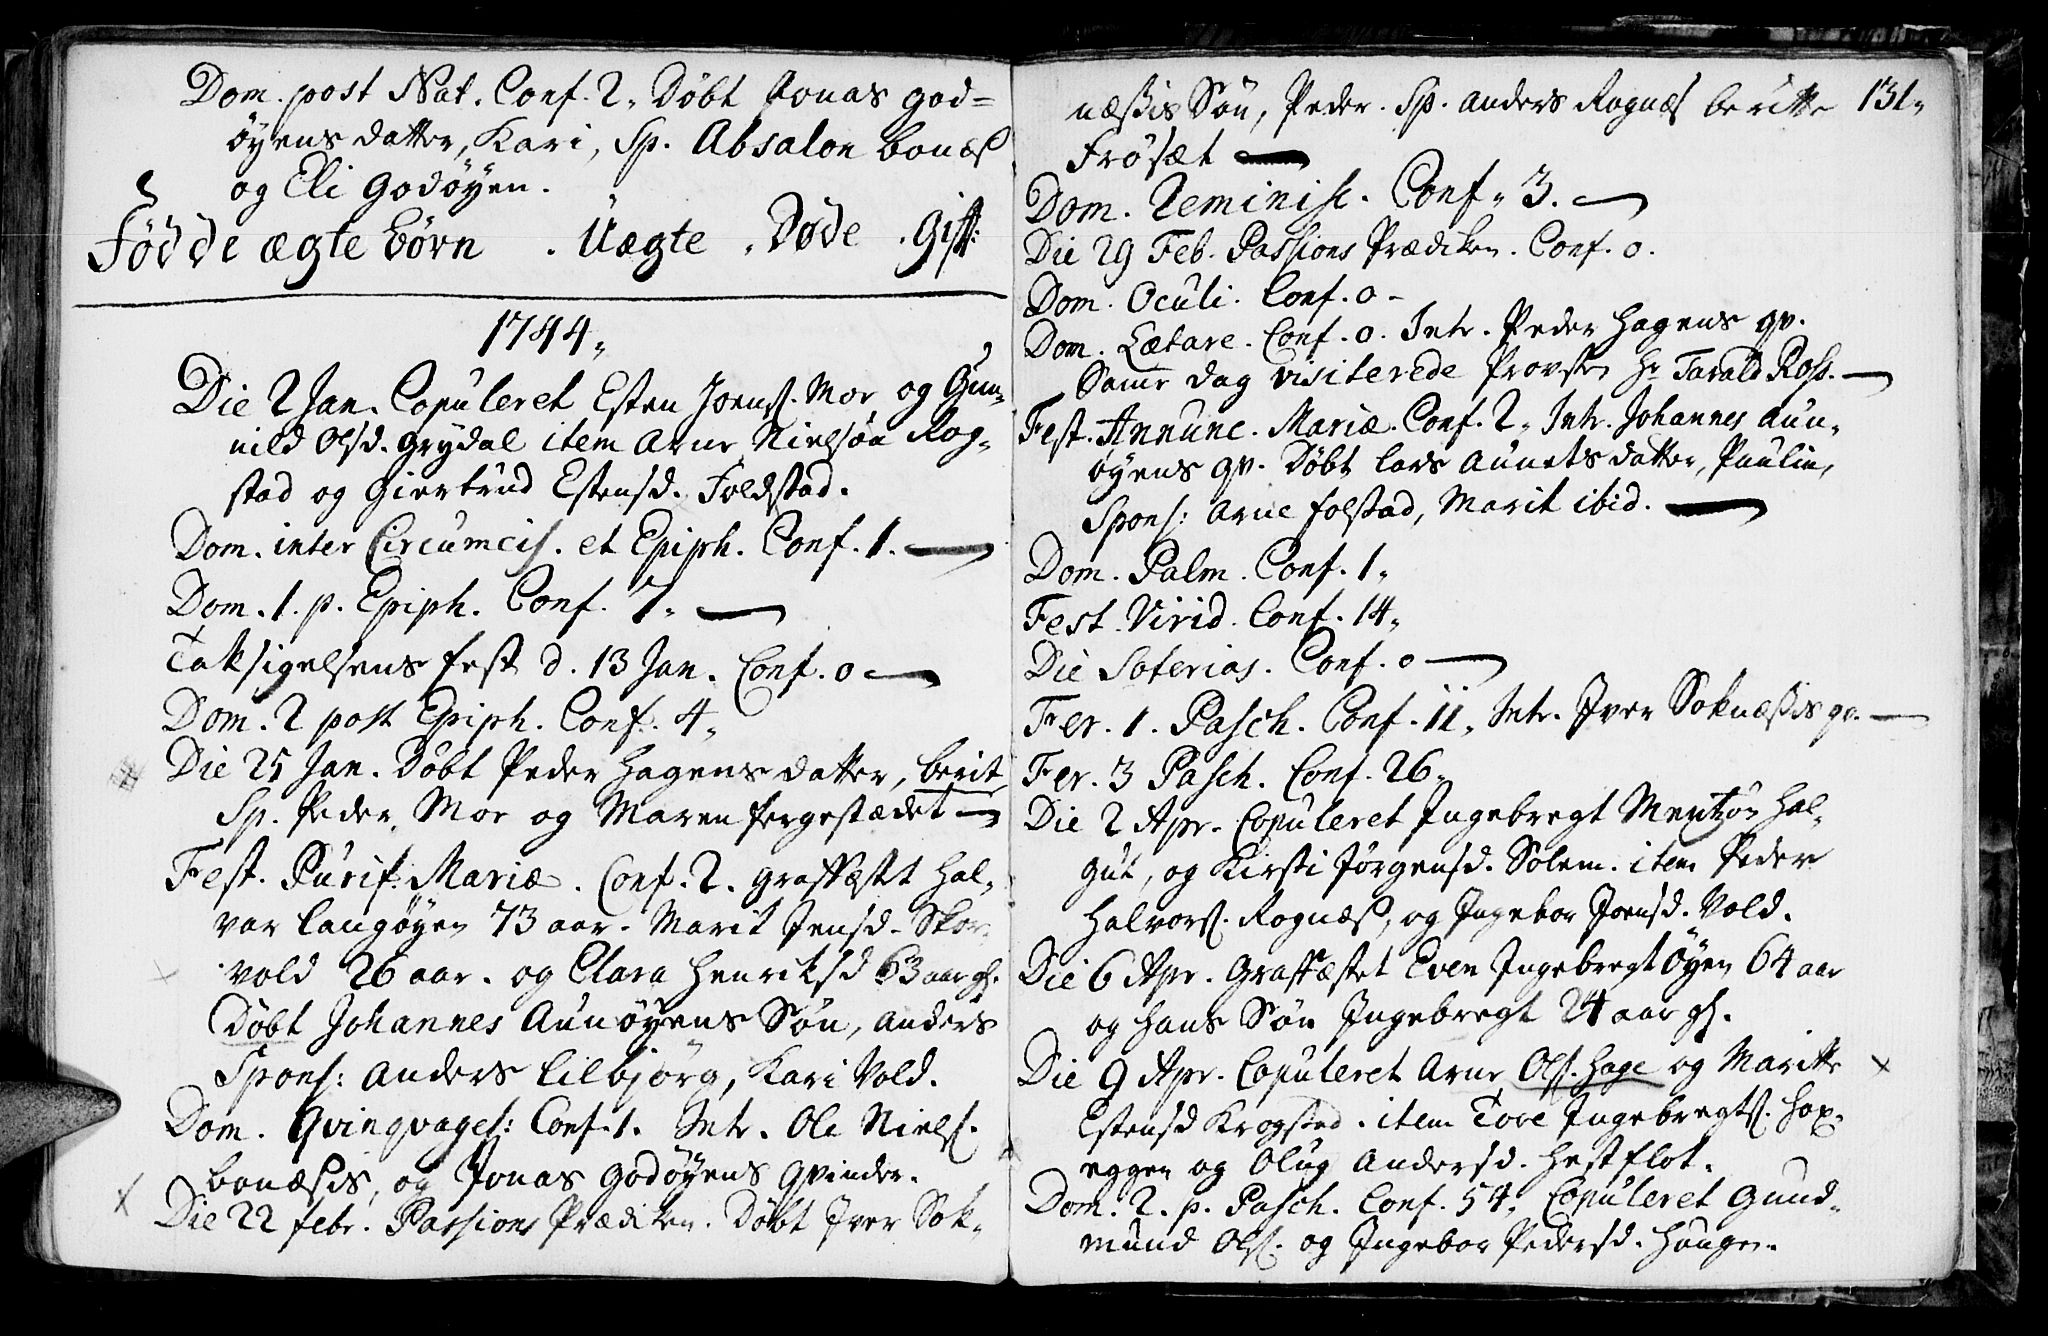 Dom. post Nat. Conf. 2. Døbt Jonas god=
øyens datter, Kari, Sp. Absalon bonæs
og Eli Godøyen.
Fødde ægte børn . Uægte . Døde . Gift:
1744.
Die 2 Jan. Copuleret Esten Joens. Mor og Gun-
nild Olsd. Grydal item Arne Nielsøn Rog-
stad og Giertrud Estensd. Foldstad.
Dom. inter Circumcis. et Epiph. Conf. 1.
Dom. 1. p. Epiph. Conf. 7.
Taksigelsens fest d. 13 Jan. Conf. 0
Dom. 2 post Epiph. Conf. 4.
Die 25 Jan. Døbt Peder hagens datter, berit,
Sp. Peder Mor og Maren fergestædet
Fest. Purif. Mariæ. Conf. 2. Graffæstt Hal-
var langøyen 73 aar. Marit Jensd. Skor-
vold 26 aar. og Clara Henriksd 63 aar gl.
Døbt Johannes Aunøyens Søn, Anders
Spons: Anders lilbjørg, Kari Vold.
Dom. Qvinqvages: Conf. 1. Intr. Ole Niels.
bonæsis, og Jonas Godøyens qvinder.
Die 22 febr. Passions Prædiken. Døbt Iver Sok-
131.
næssis Søn, Peder. Sp. Anders Rognæs beritte
Frøsæt
Dom. Reminisc. Conf. 3.
Die 29 Feb. Passions Prædiken. Conf. 0.
Dom. Oculi. Conf. 0
Dom. Lætare. Conf. 0. Intr. Peder Hagens qv.
Samme dag visiterede Provsten Hr Tarald Ross.
Fest. Annunc. Mariæ. Conf. 2. Intr. Johannes Aun-
øyens qv. Døbt lars Aunets datter, Paulin,
Spons: Arne folstad, Marit ibid.
Dom. Palm. Conf. 1.
Fest. Virid. Conf. 14.
Die Soterias. Conf. 0
Fer. 1. Pasch. Conf. 11. Intr. Iver Soknæssis qv.
Fer. 3 Pasch. Conf. 26.
Die 2 Apr. Copuleret Ingebregt Mentzøn Hal-
gut, og Kirsti Jørgensd. Solem. item Peder
Halvors. Rognæs, og Ingebor Joensd. Vold.
Die 6 Apr. Graffæstet Even Ingebregt Øyen 64 aar
og hans Søn Ingebregt 24 aar gl.
Die 9 Apr. Copuleret Arne Ols. Hage og Maritte
Estensd Krogstad. item Tore Ingebregts. Hox-
eggen og Olug Andersd. Hestflot.
Dom. 2. p. Pasch. Conf. 54. Copuleret Gund-
mund Ols. og Ingebor Pedersd. Haugen.